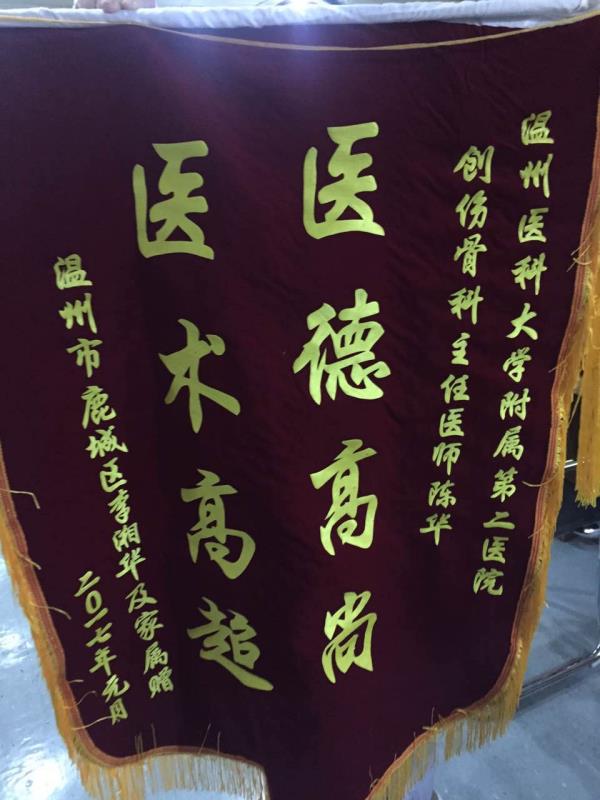 温州医科大学附属第二医院
创伤骨科主任医师陈华
医德高尚
医术高超
温州市鹿城区李湘华及家属赠
二〇一七年元月